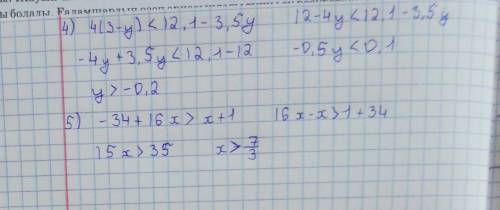 4) 4(3-y)<12,1-3,5y 12-4y<12,1-3,5y
-4y+3,5y<12,1-12 -0,5y<0,1
y>-0,2
5) -34+16x>x+1 16x-x>1+34
15x>35 x>7/3